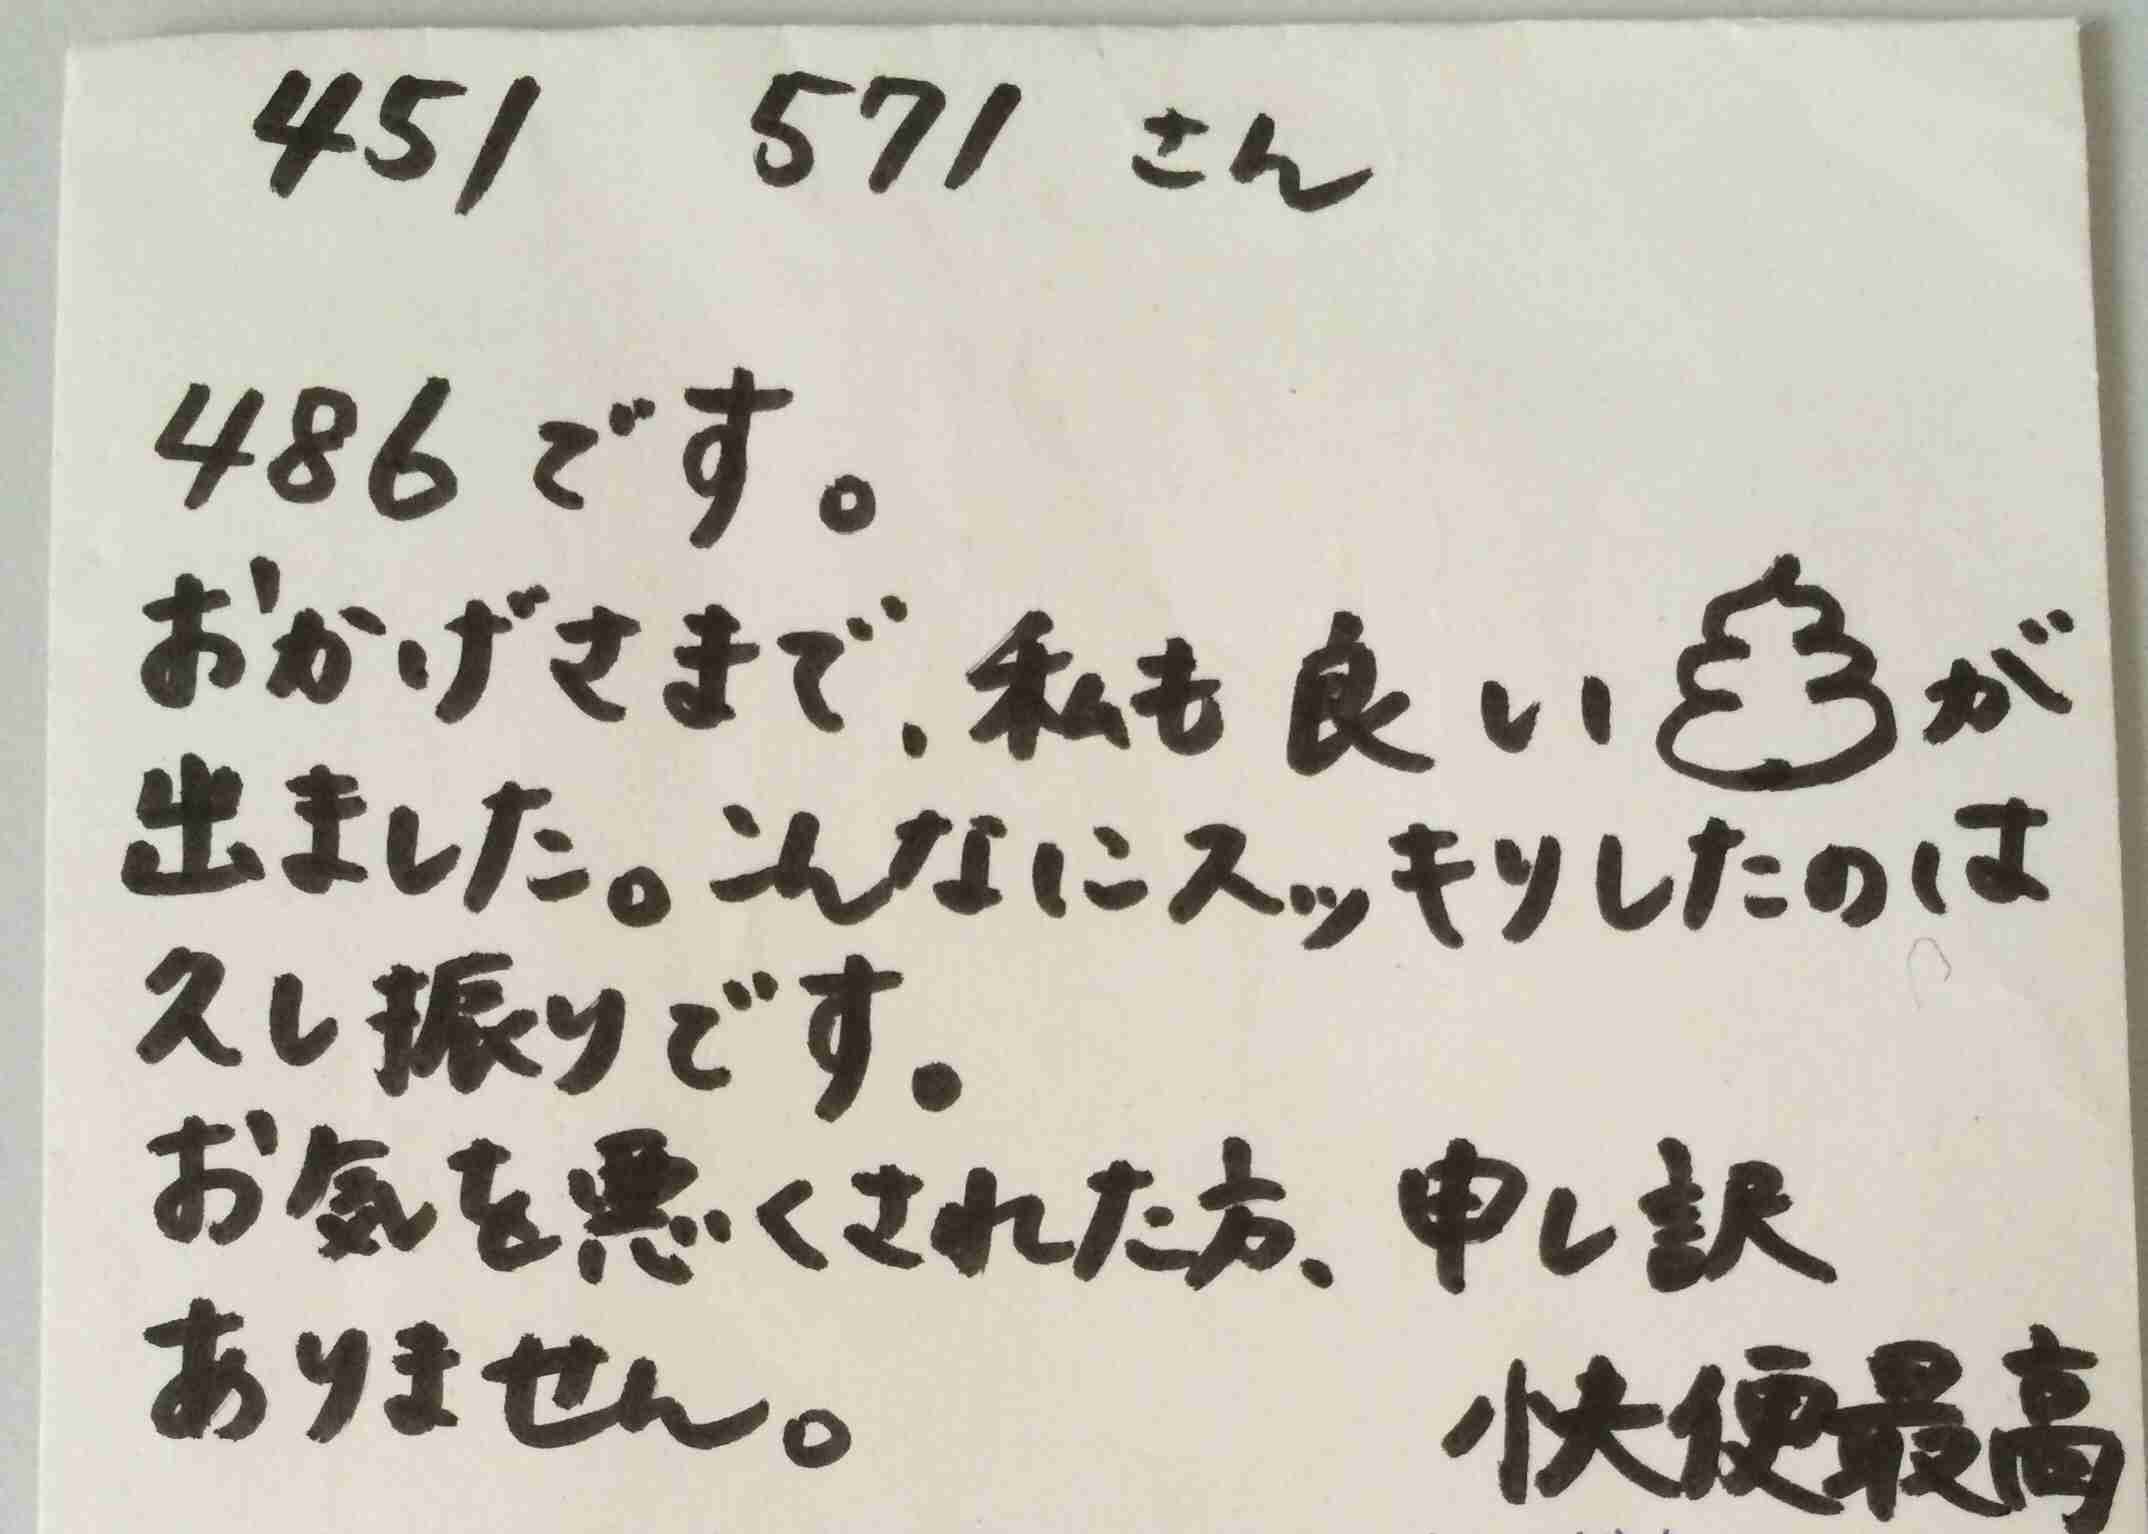 451 571 さん
486です。
おかげさまで、私も良い💩が
出ました。こんなにスッキリしたのは
久し振りです。
お気を悪くされた方、申し訳
ありません。
快便最高